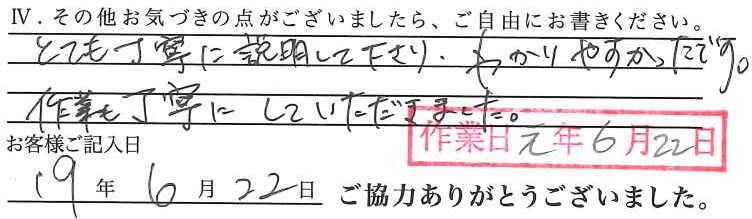 Ⅳ．その他お気づきの点がございましたら、ご自由にお書きください。
とても丁寧に説明して下さり、わかりやすかったです。
作業も丁寧にしていただきました。
作業日元年6月22日
お客様ご記入日
19年6月22日 ご協力ありがとうございました。